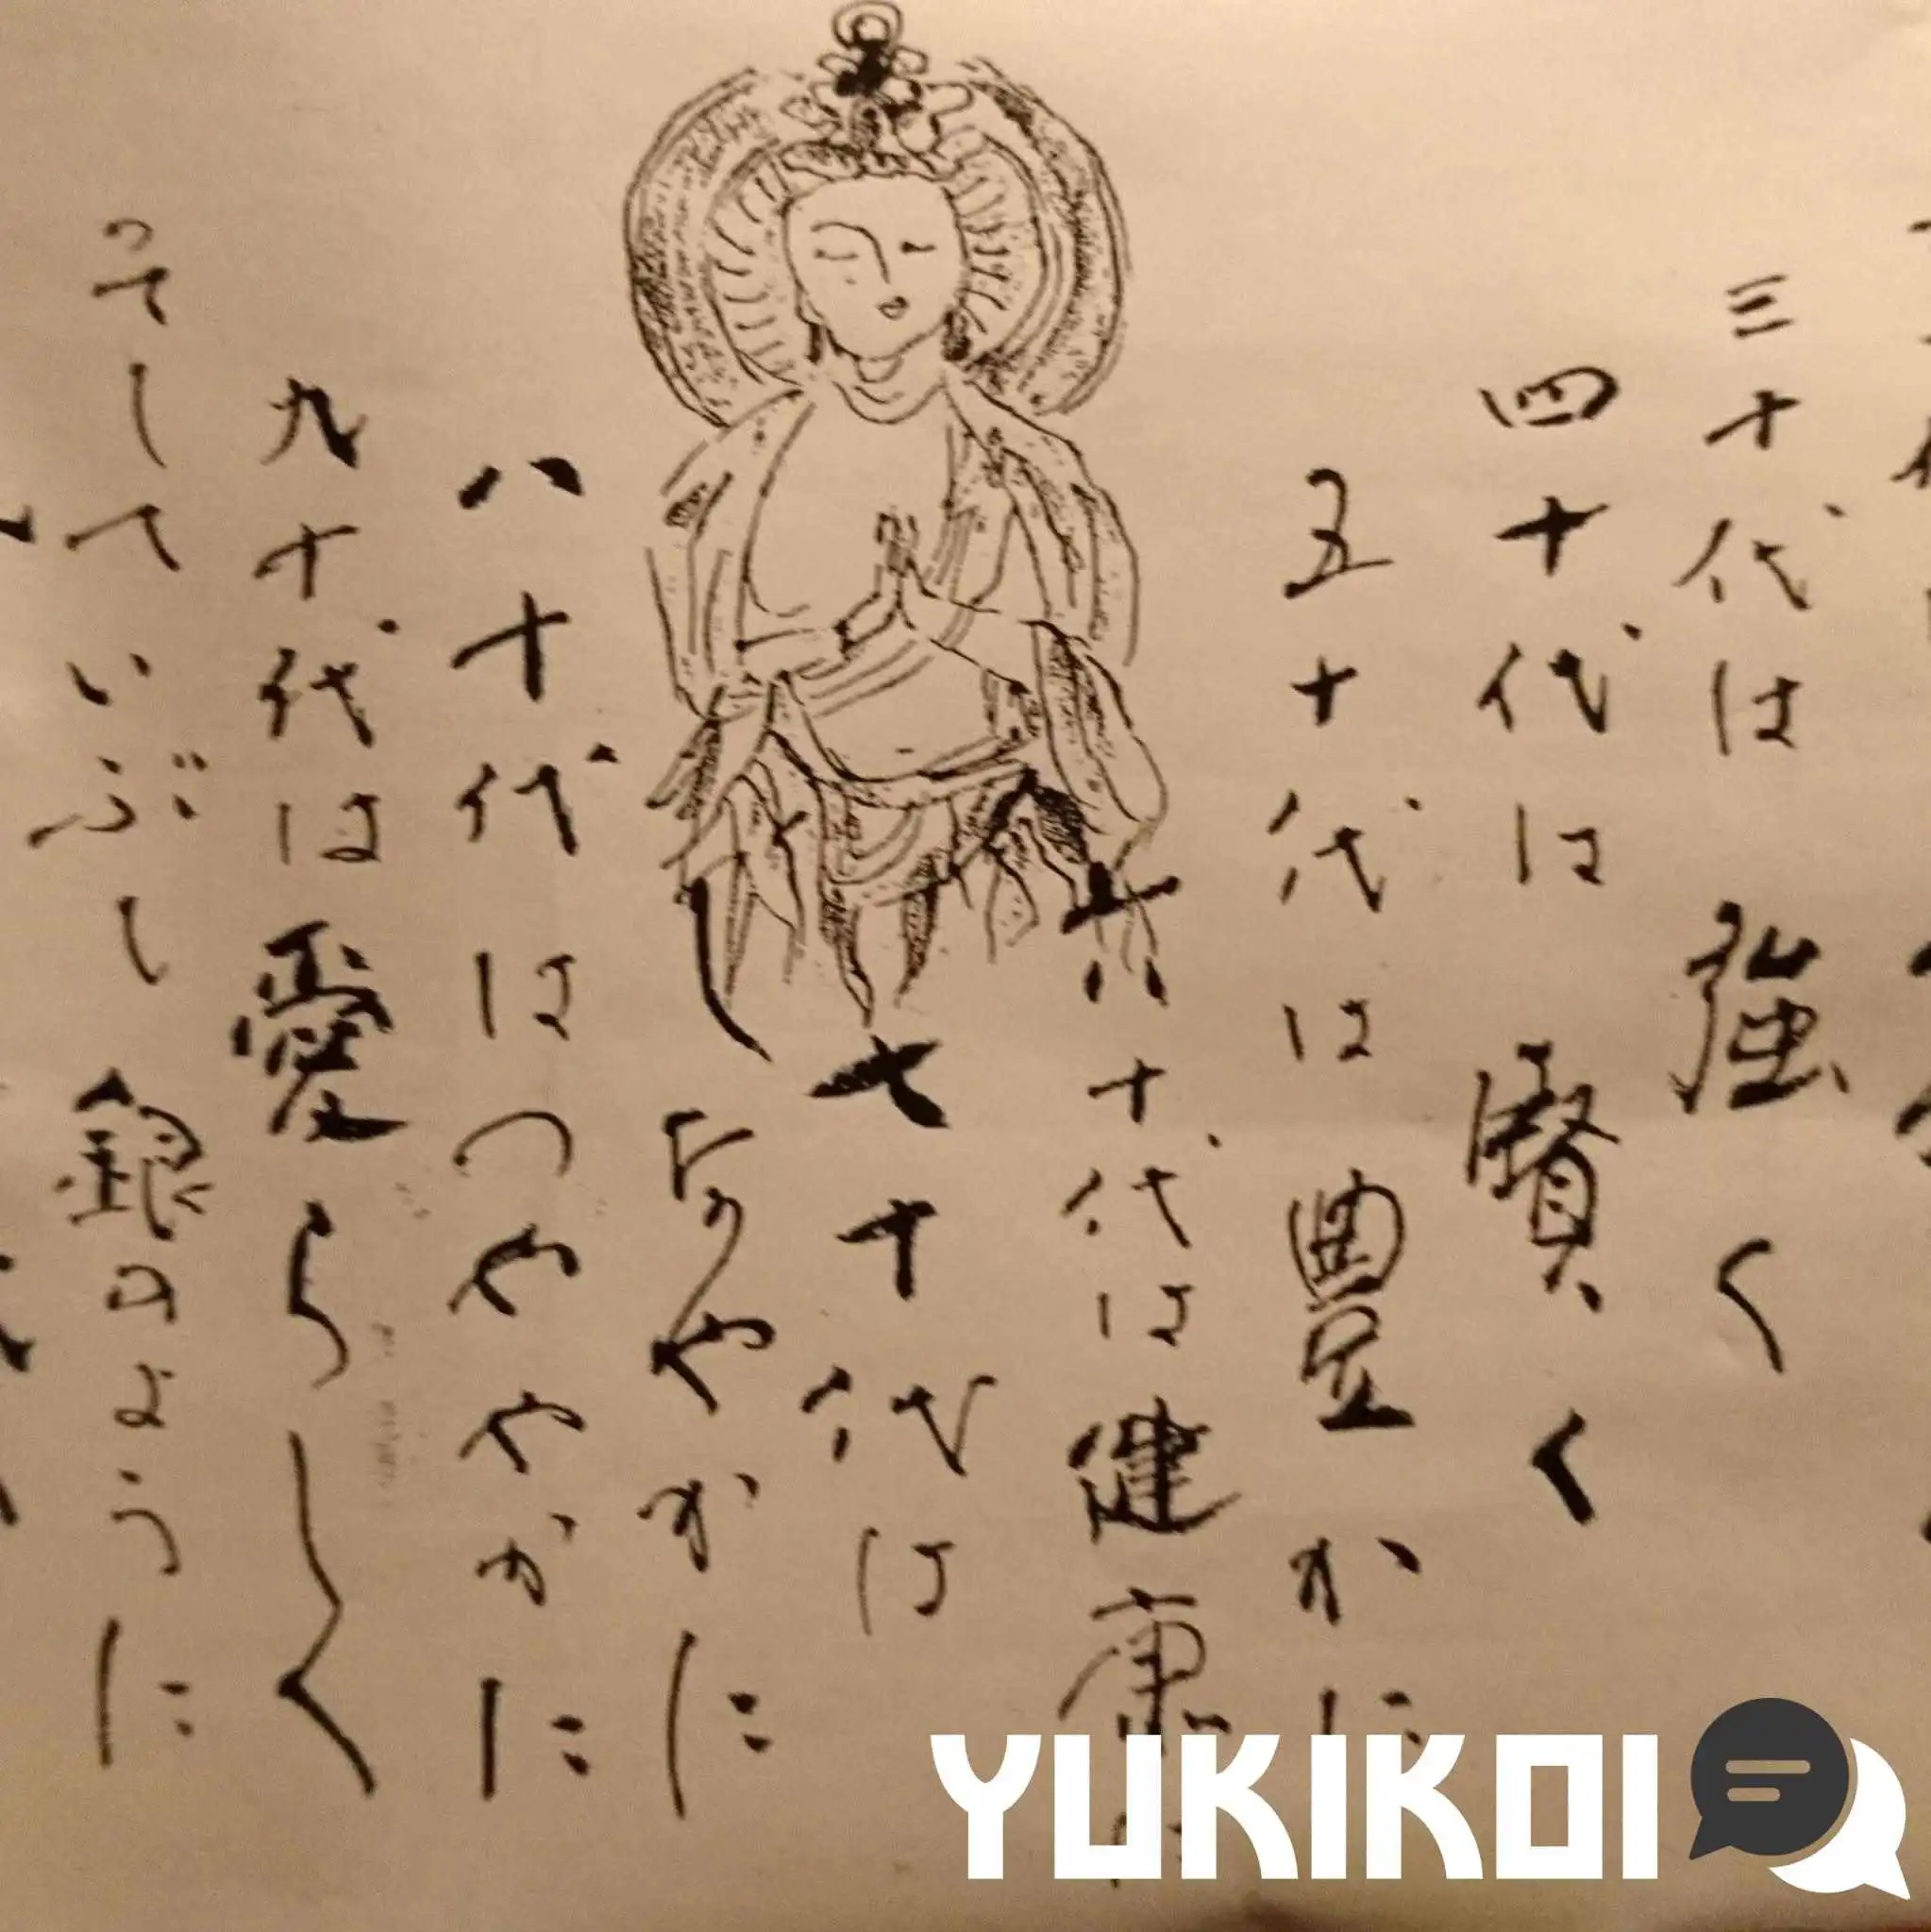 三十代は強く
四十代は賢く
五十代は豊かに
六十代は健康に
七十代は
しなやかに
八十代はつややかに
九十代は愛らしく
そしていぶし銀のように
YUKIKOI